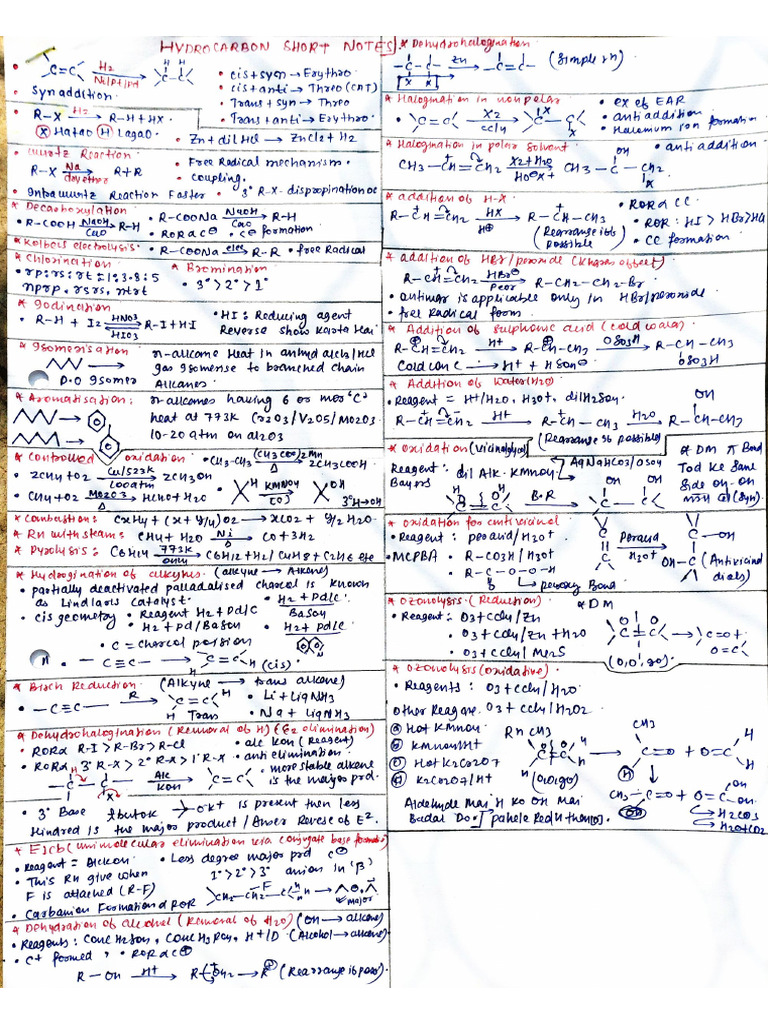 HYDROCARBON SHORT NOTES
C=C H2 Ni/Pt/Pd H H C-C
• Syn addition.
• cis + syn → Erythro
• cis + anti → Threo (CAT)
• Trans + syn → Threo
• Trans + anti → Erythro
• R-X H2 R-H + HX.
X Hatao H Lagao.
• Zn + dil HCl → ZnCl2 + H2
* Wurtz Reaction
R-X Na dry ether R+R
• Free Radical mechanism
• coupling.
• Intra wurtz Reaction Faster
• 3° R-X-
* Decarboxylation
• R-COOH NaOH CaO R-H
• R-COONa NaOH CaO R-H
• ROR α C⊖ • C⊖ formation
* Kolbe's electrolysis • R-COONa elec R-R • free Radical
* Chlorination
• rp:rs:rt = 1:3.8:5
nprp, rsrs, ntrt
* Bromination
• 3° > 2° > 1°
* Iodination
• R-H + I2 HNO3 HIO3 R-I + HI
• HI: Reducing agent
Reverse show karta Hai
* Isomerisation
P.O Isomer
n-alkane Heat in anhyd alcl3/Hcl
gas isomerise to branched chain
Alkanes
* Aromatisation:
n-alkanes having 6 or more 'C'
heat at 773K Cr2O3/V2O5/MO2O3
10-20 atm on al2O3
* Controlled oxidation
• CH3-CH3 (CH3COO)2Mn 2CH3COOH
• 2CH4 + O2 Cu/523K 100atm 2CH3OH
• CH4 + O2 MO2O3 HCHO + H2O
H KMNO4 [O] OH 3°H→OH
* Combustion: CxHy + (x + y/4) O2 → xCO2 + y/2 H2O.
* Rn with steam: CH4 + H2O Ni CO + 3H2
* Pyrolysis: C6H14 773K C6H12 + H2 / C4H8 + C2H6 etc
* Hydrogination of alkynes. (alkyne → Alkene)
• partially deactivated palladalised charcol is known
as Lindlar's Catalyst.
• cis geometry • Reagent H2 + Pd/C
• H2 + Pd/BaSO4
• H2 + Pd/C BaSO4
• H2 + Pd/C N
• C = charcol
• -C≡C- → H C=C H (cis)
* Birch Reduction (Alkyne → trans alkene)
• -C≡C- R H C=C H Trans
• Li + Liq NH3
• Na + Liq NH3
* Dehydrohalogination (Removal of H) (E2 elimination)
• ROR α R-I > R-Br > R-Cl
• ROR α 3° R-X > 2° R-X > 1° R-X
• alc KOH (Reagent)
• anti elimination
• more stable alkene
is the major prd.
H -C-C- X Alc KOH C=C
• 3° Base tbutok O-K+ is present then less
Hindred is the major product / Order Reverse of E2.
* E1cb (unimolecular elimination via conjugate base formation)
• Reagent = Alc KOH • Less degree major prd C⊖
• This Rn give when 1° > 2° > 3° anion in 'β'
F is attached (R-F)
• Carbanion Formation α ROR
CH2-CH2-F major
* Dehydration of alcohol (Removal of H2O) (OH → alkene)
• Reagents: Conc H2SO4, Conc H3PO4, H+/D (Alcohol → alkene)
• C+ formed, • ROR α C⊕
R-OH H+ R-OH2 → R⊕ (Rearrange is poss)
* Dehalogination
-C-C- X X Zn -C=C- (Simple rn)
* Halogination in nonpolar
C=C X2 CCl4 X C-C X
• ex of EAR
• anti addition
• Halonium ion formation
* Halogination in polar solvent
• anti addition
CH3-CH=CH2 X2+H2O HO⊖X⊕ CH3-C-CH2 OH X
* addition of H-X
R-CH=CH2 HX H⊕ R-CH-CH3
(Rearrange is possible)
• ROR α CC
• ROR: HI > HBr > HCl
• CC formation
* addition of HBr / peroxide (Kharas effect)
R-CH=CH2 HBr Peor R-CH2-CH2-Br
• antimar is applicable only in HBr/peroxide
• free Radical form.
* Addition of Sulphonic acid (cold conc)
R-CH=CH2 H+ R-CH-CH3 OSO3H R-CH-CH3 OSO3H
Cold conc → H+ + HSO4⊖
* Addition of Water (H2O)
• Reagent = H+/H2O, H3O+, dil H2SO4
R-CH=CH2 H+ R-CH-CH3 H2O R-CH-CH3 OH
(Rearrange is possible)
* oxidation (vicinalglycol)
Reagent: dil Alk. KMNO4 / AgNaHCO3/OSO4
Bayers
B.R OH OH -C-C-
* DM π Bond
Tod ke Same
Side OH-OH
(Syn)
* oxidation for antivicinal
• Reagent: peroacid/H3O+
• MCPBA • R-CO3H/H3O+
• R-C-O-O-H
O Peroxy Bond
C=C Peroacid H3O+ OH -C- OH-C- (Antivicinal diols)
* Ozonolysis (Reduction)
• Reagent: O3 + CCl4/Zn
• O3 + CCl4/Zn + H2O
• O3 + CCl4/Me2S
* DM
C=C → C=O + O=C
(O,O,go)
* Ozonolysis (oxidative)
• Reagents: O3 + CCl4/H2O
O3 + CCl4/H2O2
Other Reagent
Hot KMnO4
KMNO4/H+
Hot K2Cr2O7
K2Cr2O7/H+
Rn CH3 C=C H H (O,O,go)
CH3 C=O + O=C H H
CH3-C=O + O=C OH OH OH
H2CO3
H2O + CO2
Aldehyde Mai H ko OH Mai
Badal Do. pahele Red H then